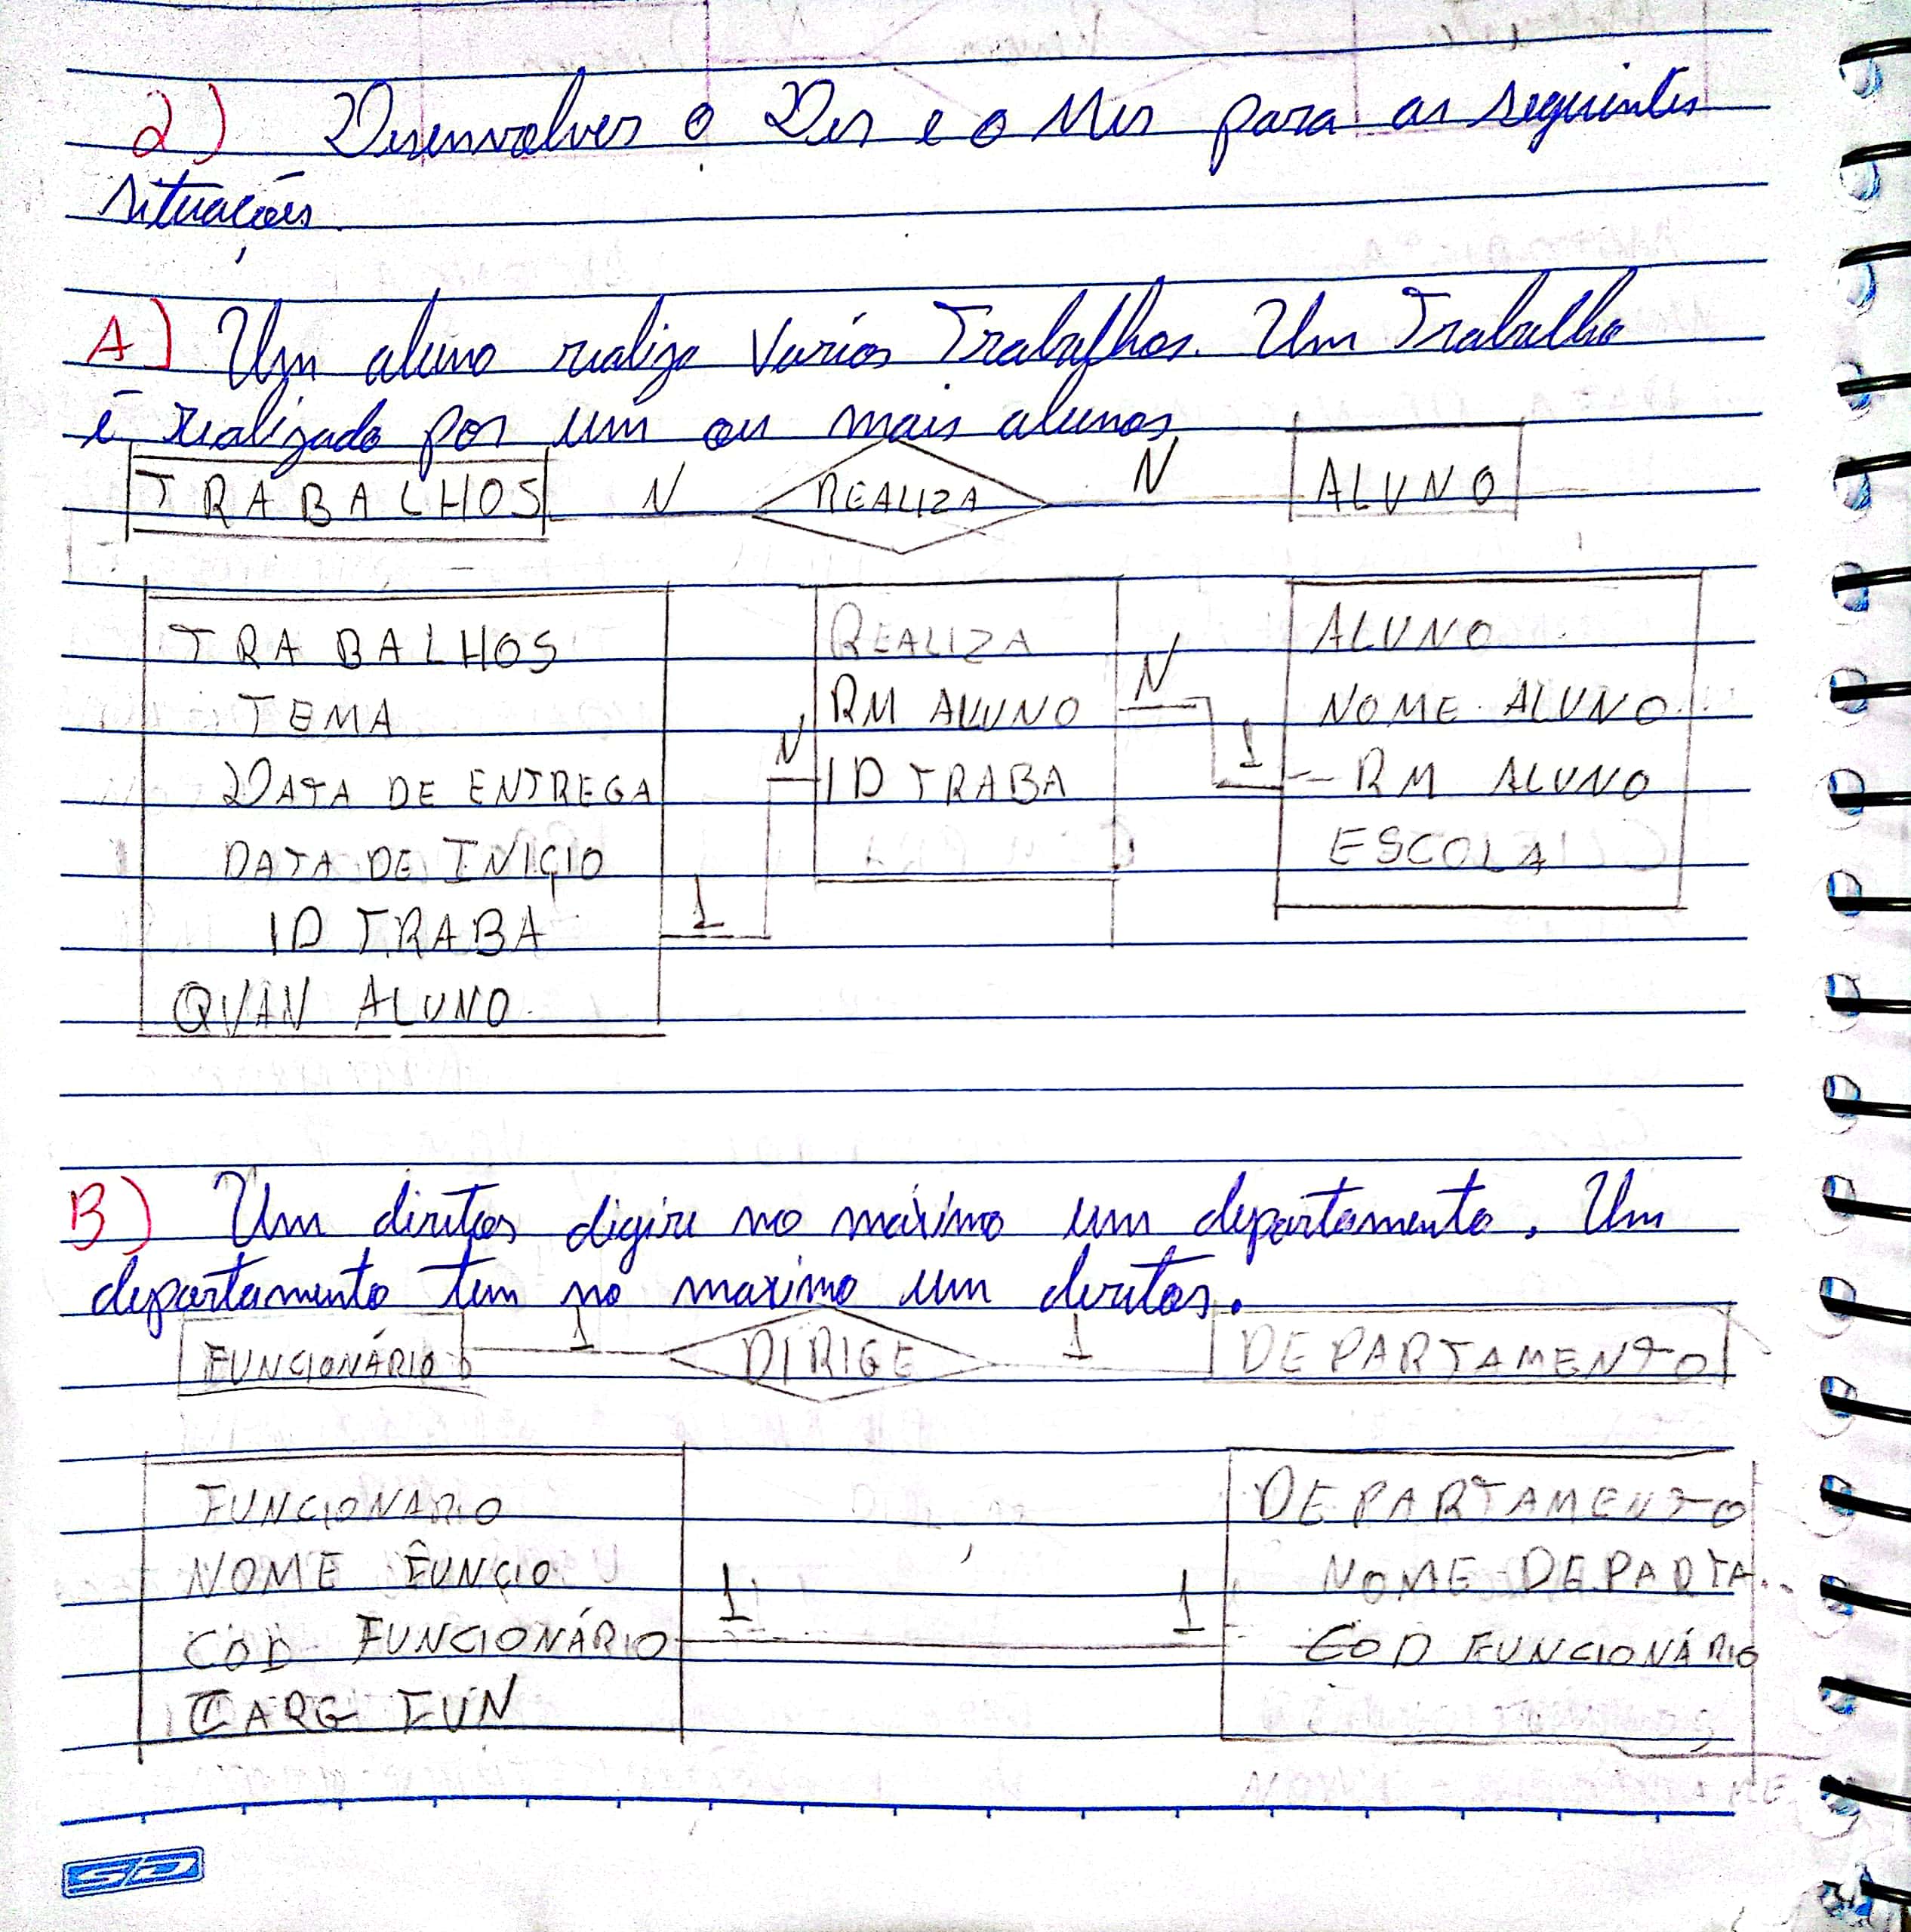 2) Desenvolver o Der e o Mer para as seguintes
situações.
A) Um aluno realiza varios Trabalhos. Um Trabalho
é realizado por um ou mais alunos
TRABALHOS N REALIZA N ALUNO
TRABALHOS
TEMA
DATA DE ENTREGA
DATA DE INICIO
ID TRABA
QUAN ALUNO
1
N
REALIZA
RM ALUNO
ID TRABA
N
1
ALUNO
NOME ALUNO
RM ALUNO
ESCOLA
B) Um diretor digire no máximo um departamento. Um
departamento tem no maximo um diretor.
FUNCIONÁRIO 1 DIRIGE 1 DEPARTAMENTO
FUNCIONARIO
NOME FUNCIO
COD FUNCIONÁRIO
CARG FUN
1
1
DEPARTAMENTO
NOME DEPARTA..
COD FUNCIONÁRIO
SD